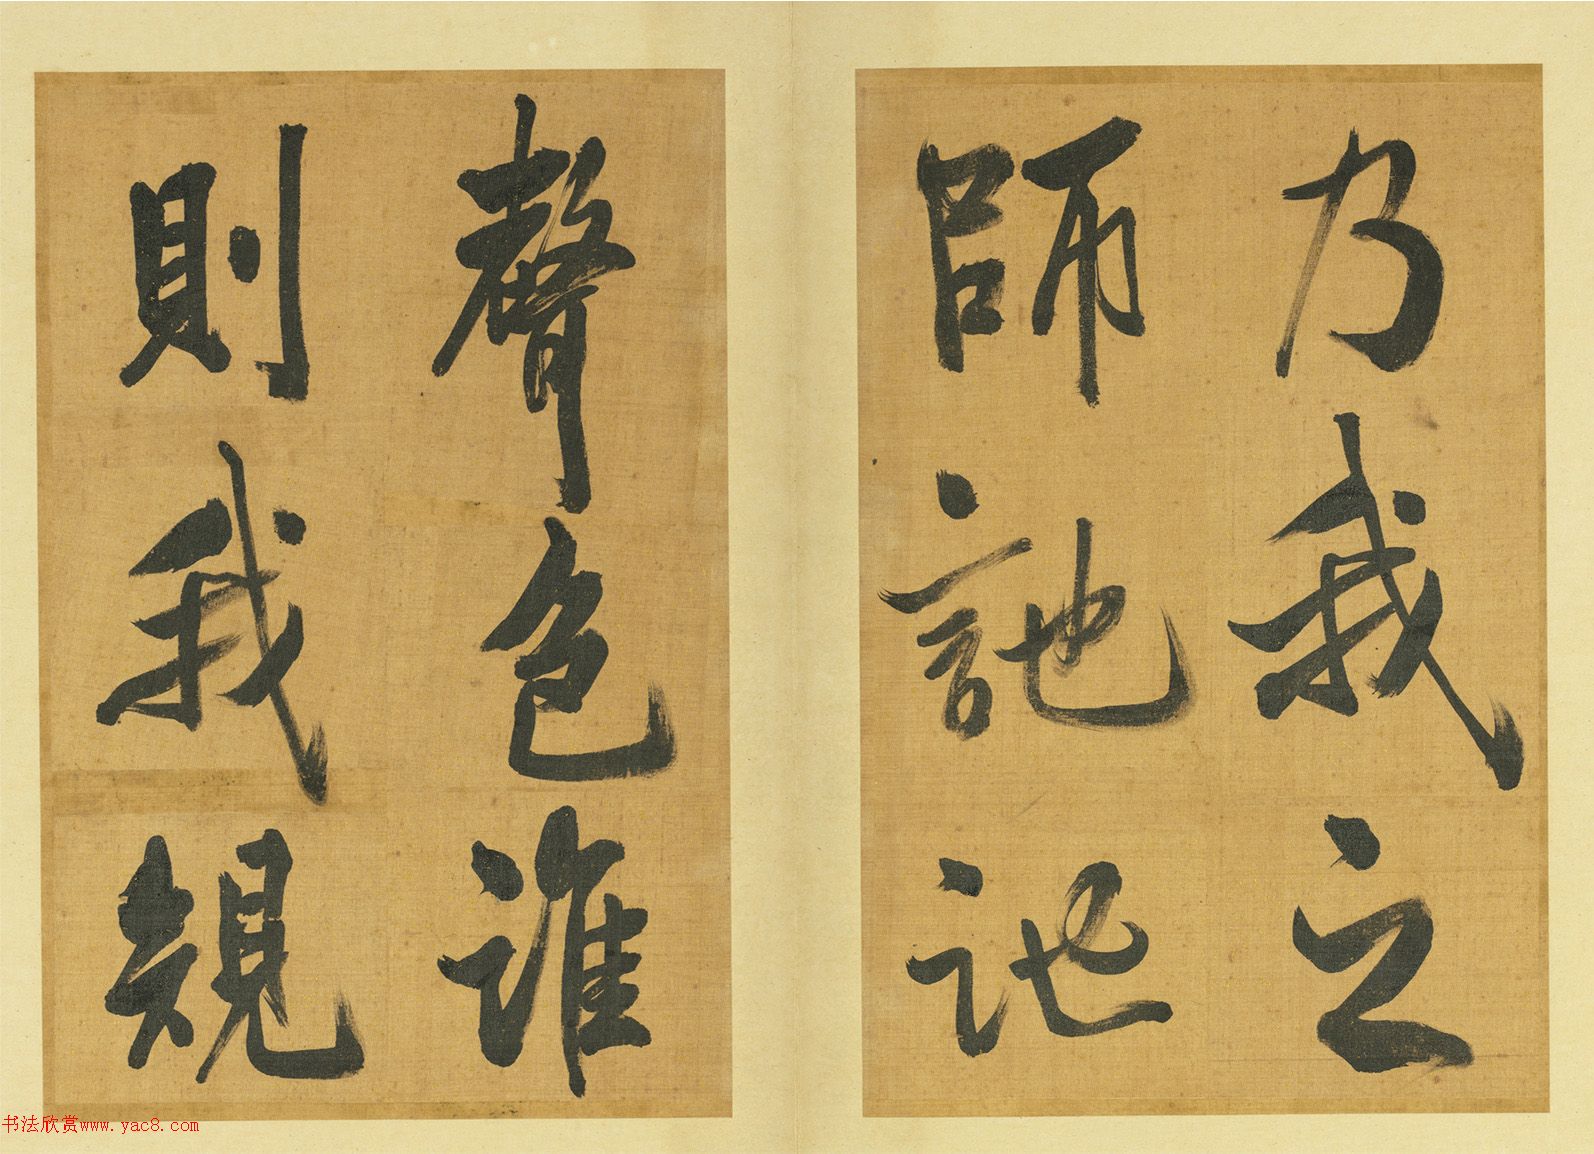 乃我之
師訑訑
聲色誰
則我規
书法欣赏www.yac8.com